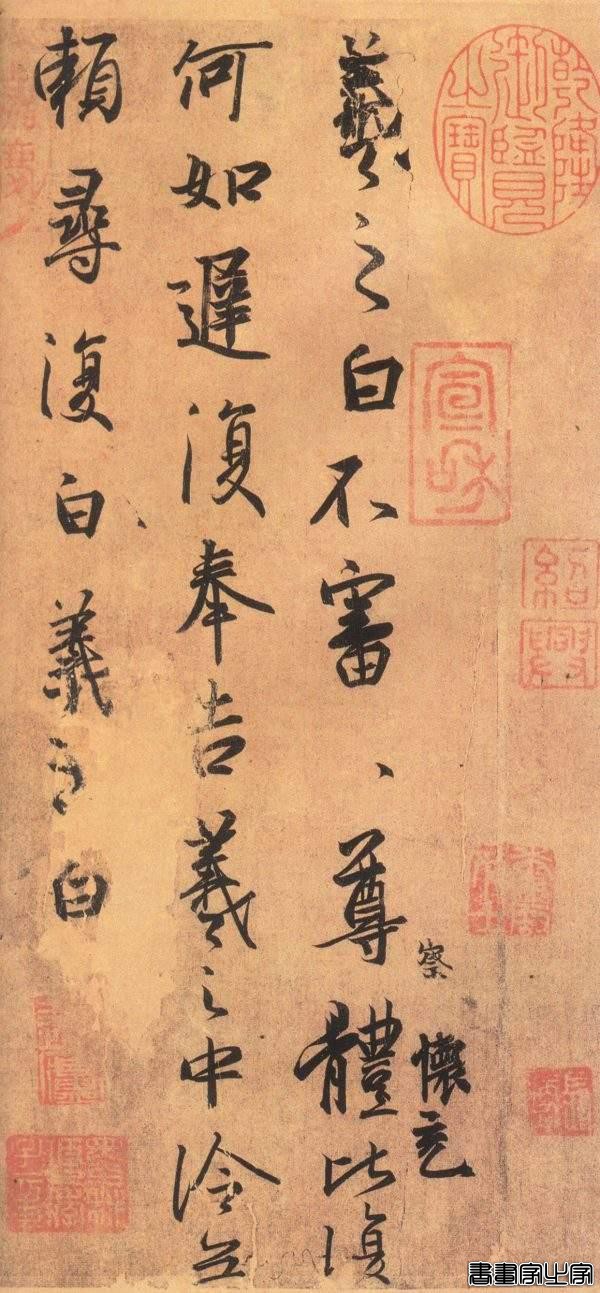 乾隆御覽之寶
宣和
紹興
察 懷充
羲之白不審、尊體比復
何如遲復奉告羲之中冷無
賴尋復白羲之白